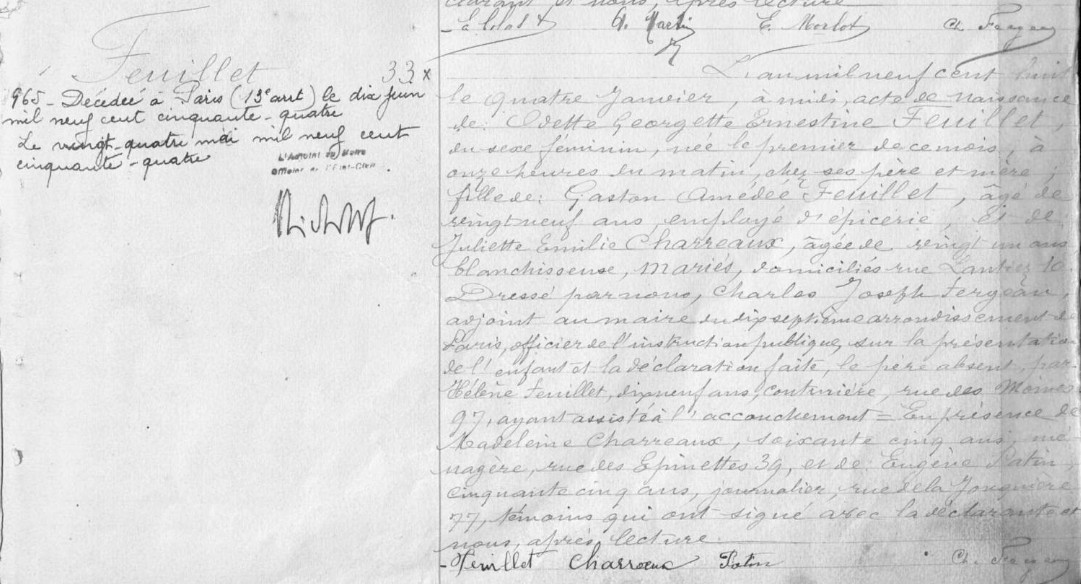 courant et nous, après lecture
E. Morlot
Feuillet
33 x
965 - Décédée à Paris (13e arrt) le dix juin
mil neuf cent cinquante-quatre
Le vingt-quatre mai mil neuf cent
cinquante-quatre
L'Adjoint au Maire
Officier de l'Etat-Civil
L'an mil neuf cent huit
le quatre Janvier, à midi, acte de naissance
de: Odette Georgette Ernestine Feuillet,
du sexe féminin, née le premier de ce mois, à
onze heures du matin, chez ses père et mère;
fille de: Gaston Amédée Feuillet, âgé de
vingt neuf ans, employé d'épicerie, et de
Juliette Emilie Charreaux, âgée de vingt un ans
blanchisseuse, mariés, domiciliés rue Lantiez 10.
Dressé par nous, Charles Joseph Fergeau,
adjoint au maire du dix septième arrondissement de
Paris, officier de l'instruction publique, sur la présentation
de l'enfant et la déclaration faite, le père absent, par
Hélène Feuillet, dix neuf ans, couturière, rue des Moines
97, ayant assisté à l'accouchement = En présence de
Madeleine Charreaux, soixante cinq ans, mé-
nagère, rue des Epinettes 39, et de: Eugène Patin
cinquante cinq ans, journalier, rue de la Jonquière
77, témoins qui ont signé avec la déclarante et
nous, après lecture.
Feuillet Charreaux Patin